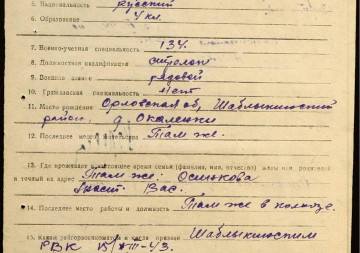 5. Национальность русский
6. Образование 4 кл.
7. Военно-учетная специальность 134.
8. Должностная квалификация стрелок
9. Воинское звание рядовой
10. Гражданская специальность
11. Место рождения Орловская об, Шаблыкинский
район, д.
12. Последнее место жительства Там же.
13. Где проживает в настоящее время семья (фамилия, имя, отчество) жены или родителей
и точный их адрес Там же: Осинкова
Вас.
14. Последнее место работы и должность Там же в колхозе.
15. Каким райгорвоенкоматом и когда призван Шаблыкинским
РВК